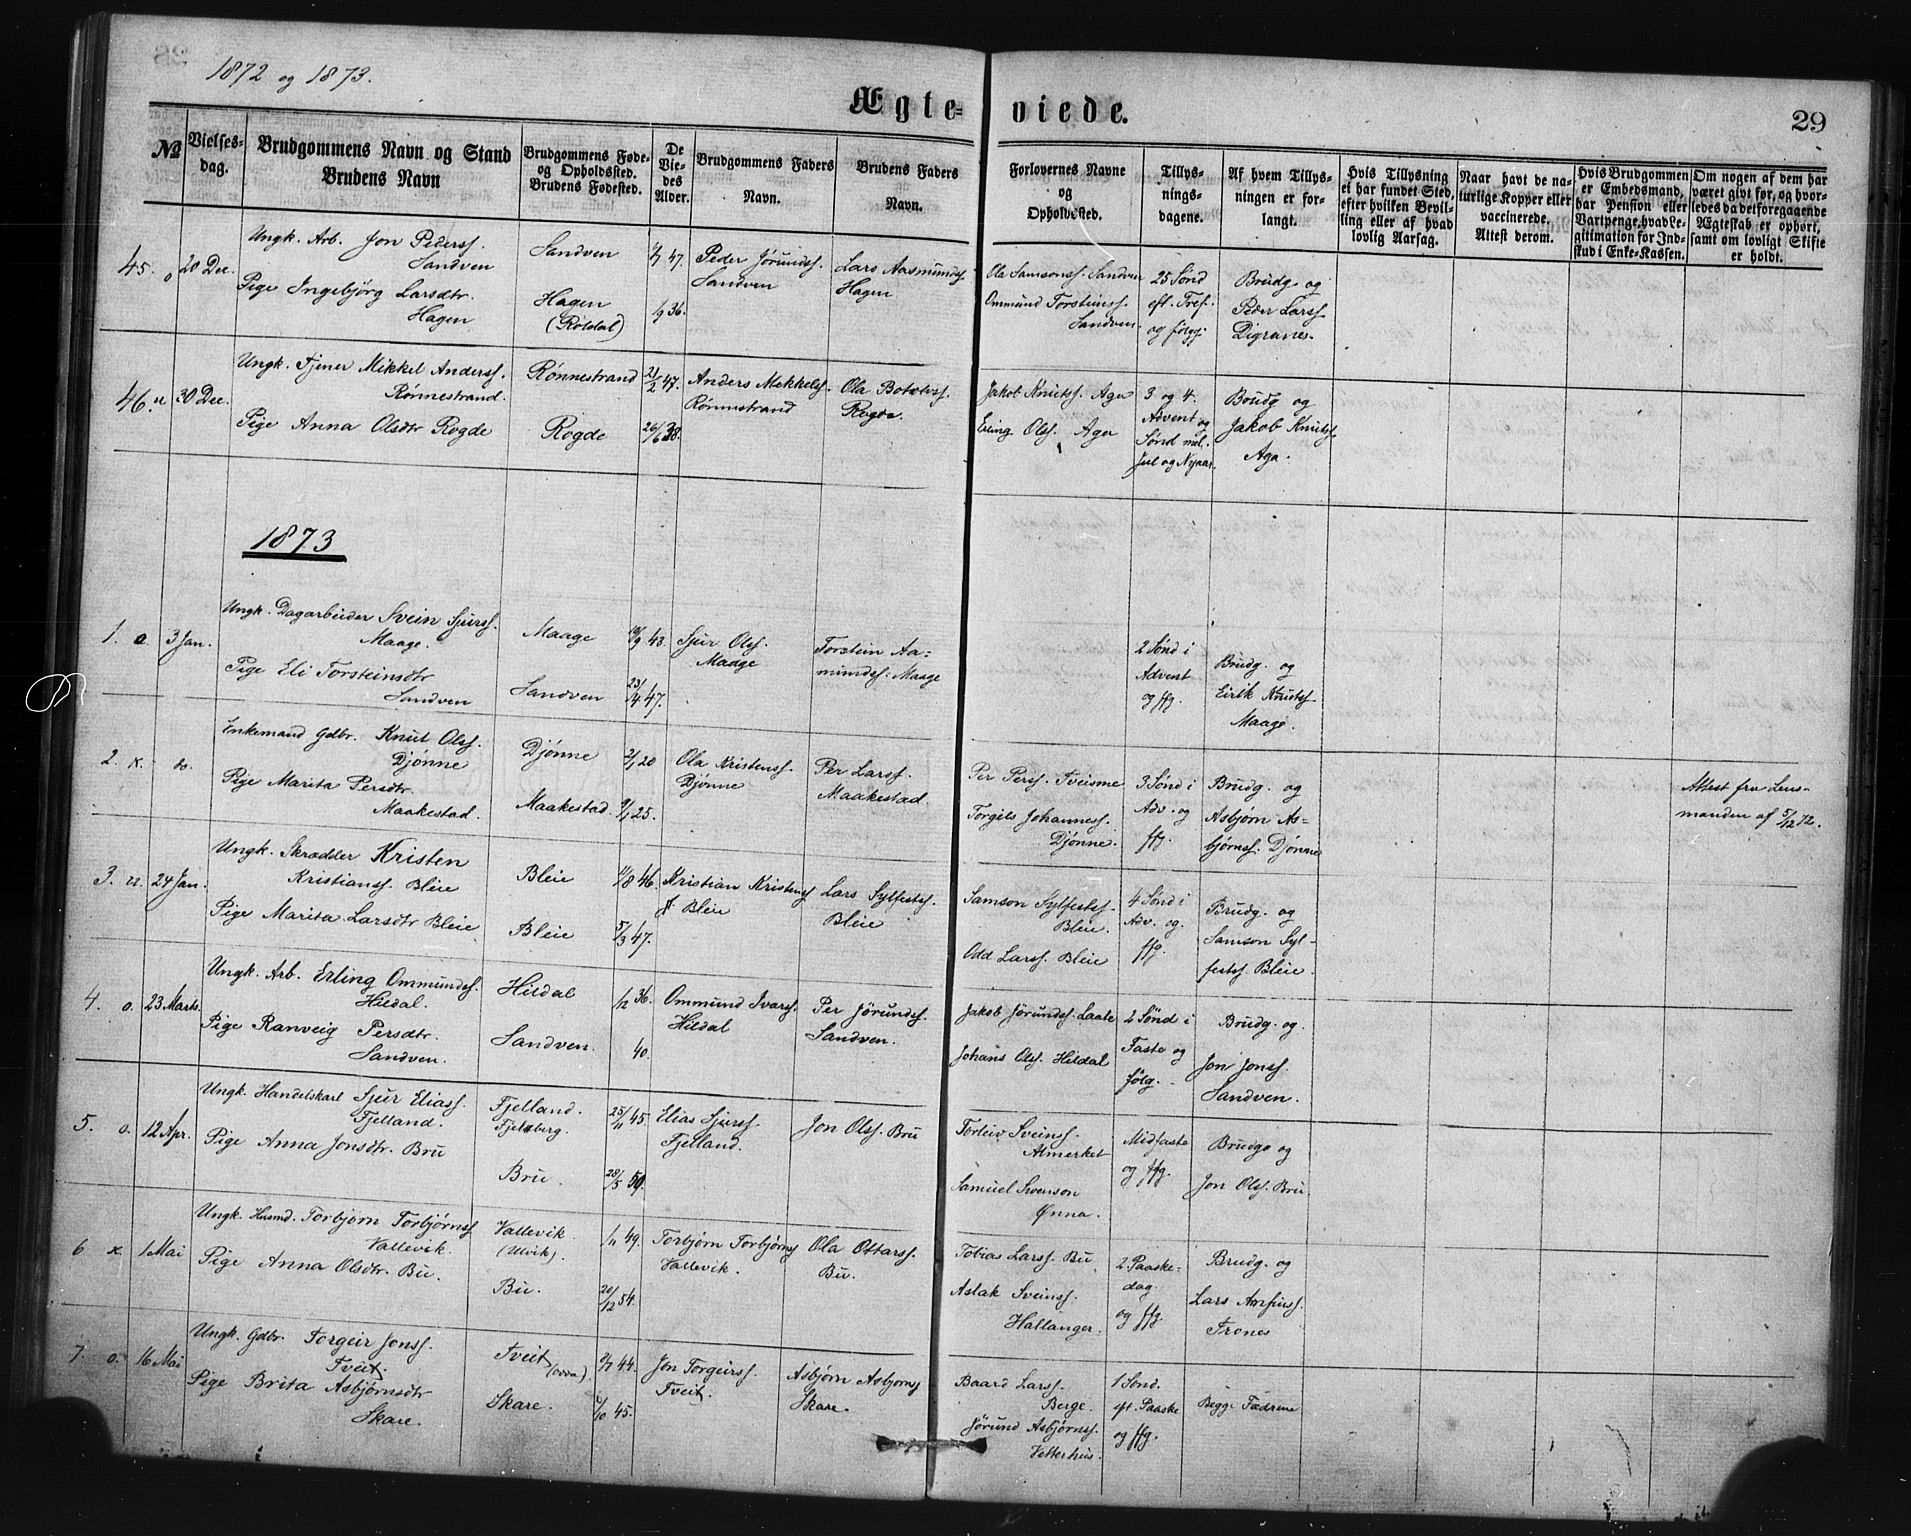 1872 og 1873.
Ægteviede.
29
№
Vielses-
dag.
Brudgommens Navn og Stand
Brudens Navn
Brudgommens Føde-
og Opholdsted.
Brudens Fødested.
De
Vie-
des
Alder.
Brudgommens Faders
Navn.
Brudens Faders
Navn.
Forlovernes Navne
og
Opholdsted.
Tillys-
nings-
dagene.
Af hvem Tillys-
ningen er for-
langt.
Hvis Tillysning
ei har fundet Sted,
efter hvilken Bevil-
ling eller af hvad
lovlig Aarsag.
Naar havt de na-
turlige Kopper eller
vaccinerede.
Attest derom.
Hvis Brudgommen
er Embedsmand,
har Pension eller
Vartpenge, hvad Le-
gitimation for Ind-
skud i Enke-Kassen.
Om nogen af dem har
været givt før, og hvor-
ledes da det foregaaende
Ægteskab er ophørt,
samt om lovligt Skifte
er holdt.
45. o 20 Dec.
Ungk. Arb. Jon Pederss.
Sandven
Pige Ingebjørg Larsdtr.
Hagen
Sandven
Hagen
(Røldal)
47.
36.
Peder Jørundss.
Sandven
Lars Aasmundss.
Hagen
Ola Samsonss. Sandven
Ommund Torsteinss.
Sandven.
25 Sønd
eft. Tref.
og følgg.
Brudg. og
Peder Larss.
Digranes.
46. u 30 Dec.
Ungk. Tjener Mikkel Anderss.
Rønnestrand.
Pige Anna Olsdtr Rogde
Rønnestrand
Rogde
21/2 47.
26/6 38.
Anders Mikkelss.
Rønnestrand
Ola Botolvss.
Rogde.
Jakob Knutss. Aga
Erling Olss. Aga
3 og 4.
Advent og
Sønd mel.
Jul og Nyaar.
Brudg og
Jakob Knutss.
Aga.
1873
1. o. 3 Jan.
Ungk. Dagarbeider Svein Sjurss.
Maage.
Pige Eli Torsteinsdtr
Sandven
Maage
Sandven
43.
23/4 47.
Sjur Olss.
Maage
Torstein Aa-
mundss. Maage
2 Sønd i
Advent
og ffg.
Brudg. og
Eirik Knutss.
Maage.
2. k.
Enkemand Gdbr. Knut Olss.
Djønne
Pige Marita Persdtr.
Maakestad.
Djønne
Maakestad.
2/1 20
9/1 25.
Ola Kristenss.
Djønne
Per Larss.
Maakestad.
Per Perss. Tveisme
Torgils Johanness.
Djønne.
3 Sønd i
Adv. og
ffg.
Brudg. og
Asbjørn As-
bjørnss. Djønne
Attest fra Lens-
manden af 5/12 72.
3. u. 24 Jan.
Ungk. Skrædder Kristen
Kristianss. Bleie
Pige Marita Larsdtr Bleie
Bleie
Bleie
11/8 46.
5/3 47.
Kristian Kristenss.
Bleie
Lars Sylfestss.
Bleie
Samson Sylfestss.
Bleie.
Odd Larss. Bleie
4 Sønd i
Adv. og
ffg.
Brudg. og
Samson Syl-
festss. Bleie.
4. o. 23 Marts.
Ungk. Arb. Erling Ommundss.
Hildal.
Pige Ranveig Persdtr.
Sandven.
Hildal
Sandven.
1/12 36.
40.
Ommund Ivarss.
Hildal
Per Jørundss.
Sandven.
Jakob Jørundss. Laate
Johans Olss. Hildal
2 Sønd i
Faste og
følg.
Brudg. og.
Jon Jonss.
Sandven.
5. o. 12 Apr.
Ungk. Handelskarl Sjur Eliass.
Fjelland.
Pige Anna Jonsdtr. Bru
Fjelland.
Fjelberg.
Bru.
25/11 45.
28/5 50.
Elias Sjurss.
Fjelland.
Jon Olss. Bru
Torleiv Sveinss.
Almerket
Samuel Svenson
Ønna.
Midfaste
og ffg.
Brudgo og
Jon Olss. Bru.
6 k. 1 Mai
Ungk. Husmd. Torbjørn Torbjørnss.
Vallevik.
Pige Anna Olsdtr. Bu.
Vallevik.
(Ulvik).
Bu.
1/11 49.
20/12 54.
Torbjørn Torbjørnss
Vallevik.
Ola Ottarss.
Bu.
Tobias Larss. Bu
Aslak Sveinss.
Hallanger.
2 Paaske-
dag.
og ffg.
Brudg. og
Lars Arnfinss.
Trones
7. o. 16 Mai
Ungk. Gdbr. Torgeir Jonss.
Tveit.
Pige Brita Asbjørnsdtr
Skare.
Tveit
Skare.
44.
45.
Jon Torgeirss.
Tveit.
Asbjørn Asbjørnss
Skare.
Baard Larss.
Berge.
Jørund Asbjørnss.
Vetterhus.
1 Sønd.
eft. Paaske
og ffg.
Begge Fædrene